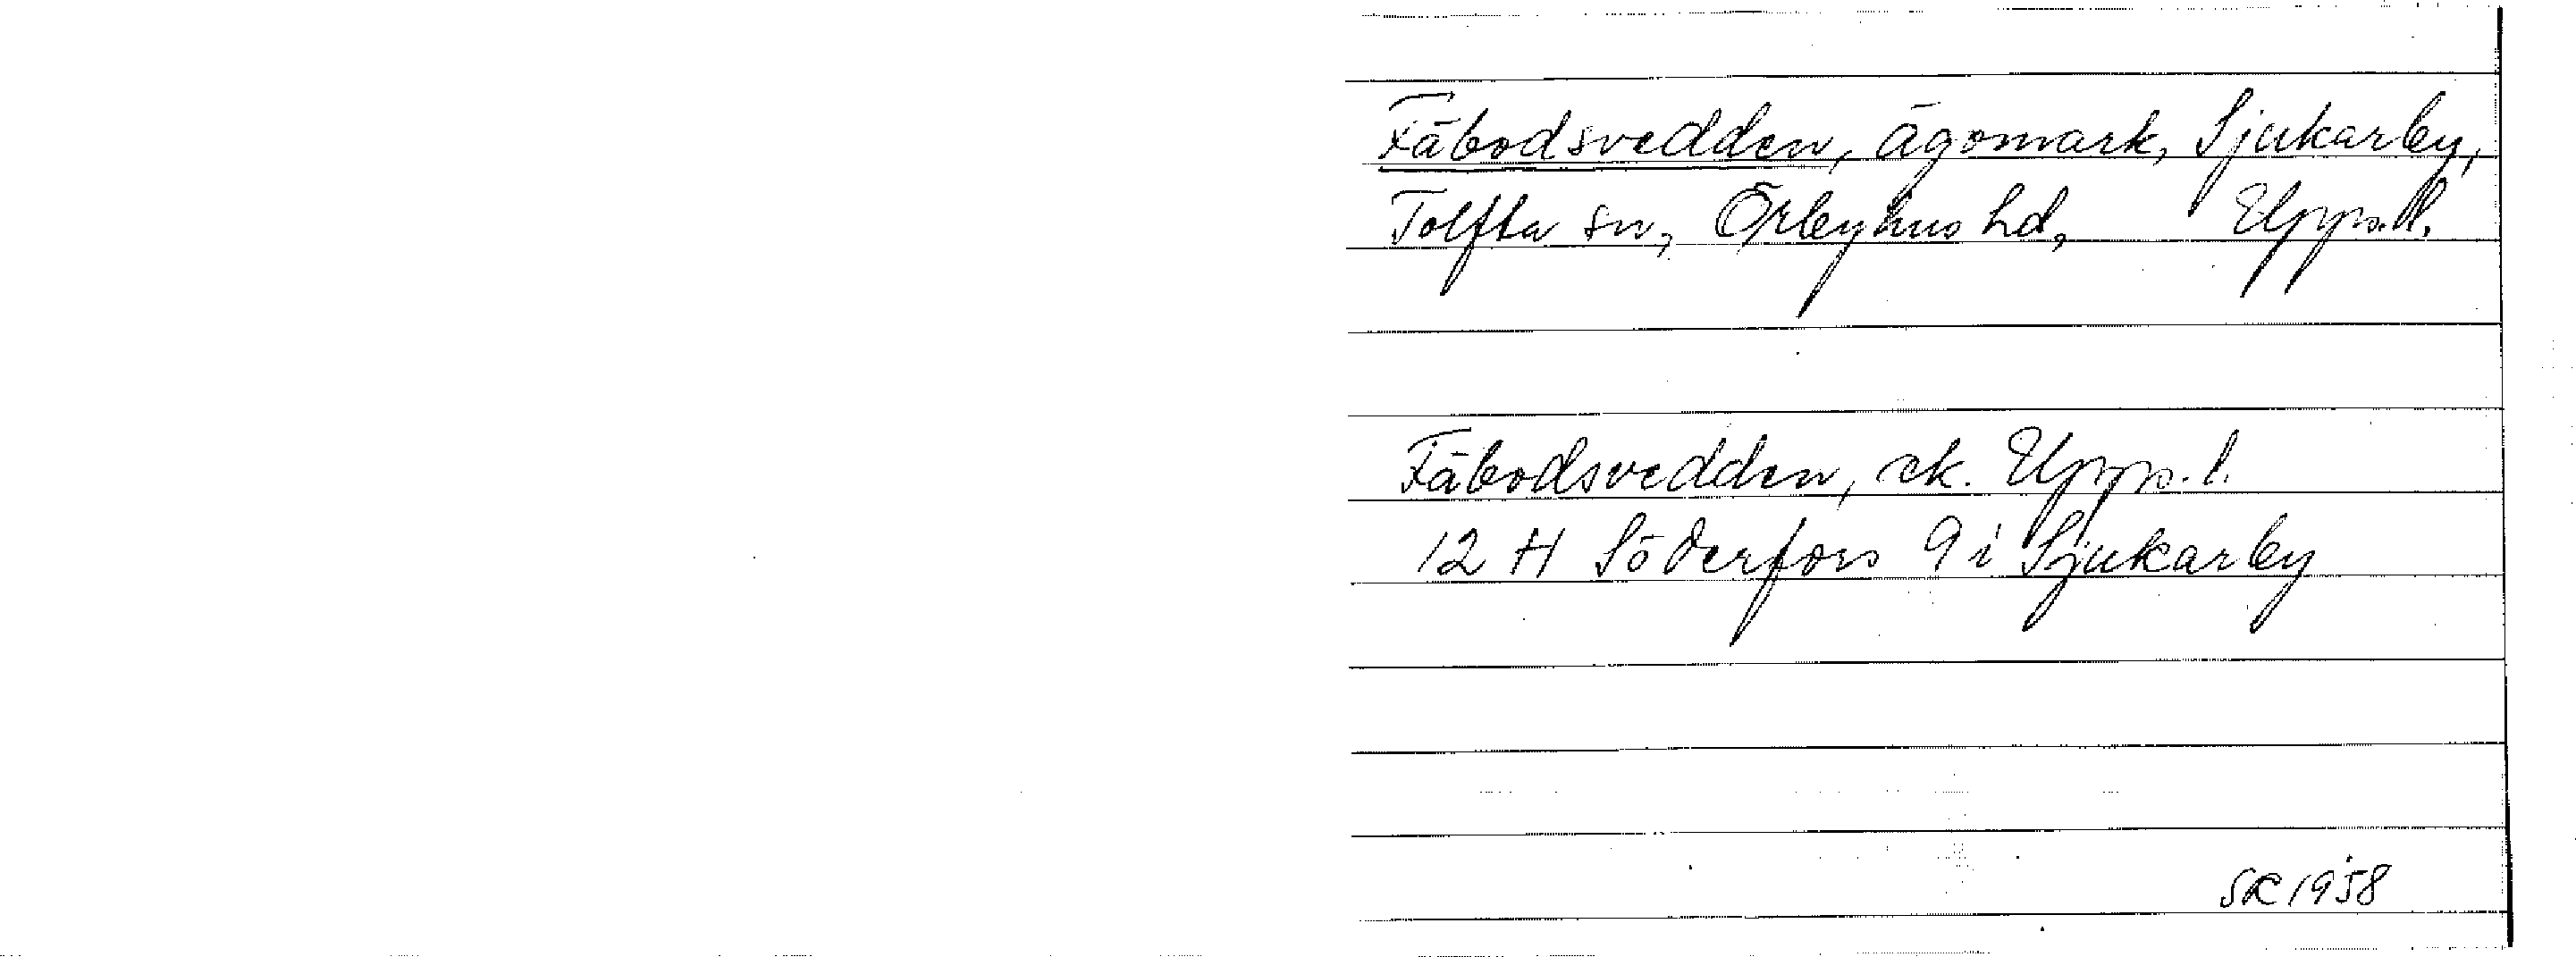 Fäbodsvedden, ägomark, Sjukarby,
Tolfta sn, Örbyhus hd, Upps.l.
Fäbodsvedden, ek. Upps.l.
12 H Söderfors 9 i Sjukarby
SR 1958